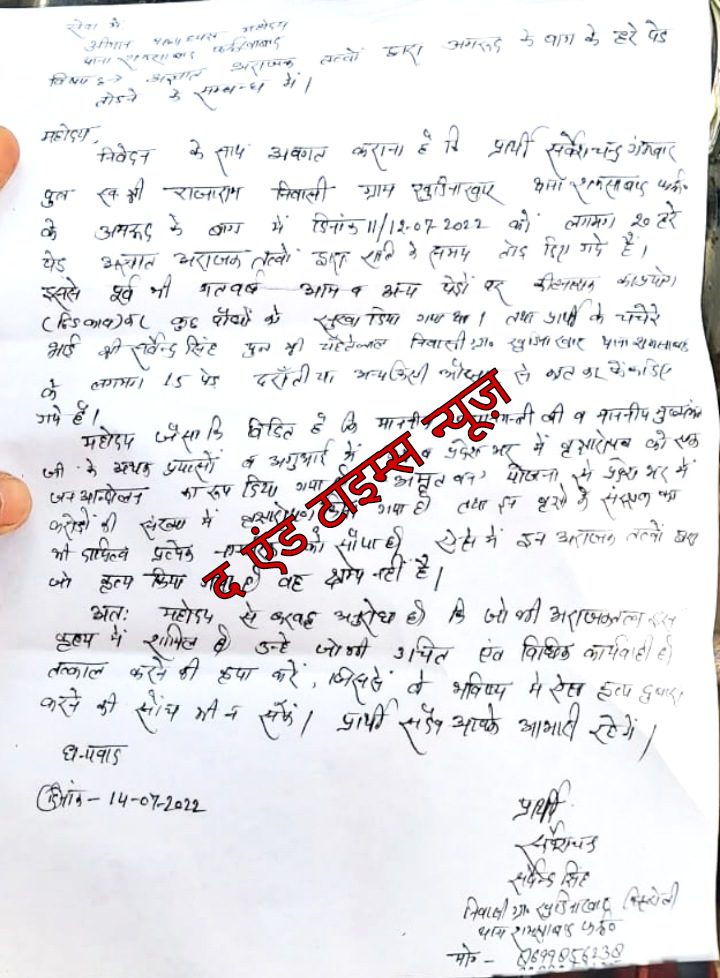 सेवा में,
श्रीमान थानाध्यक्ष महोदय
थाना शमसाबाद फर्रुखाबाद
विषय :-> अज्ञात अराजक तत्वों द्वारा अमरूद के बाग के हरे पेड
तोडने के सम्बन्ध में।
महोदय,
निवेदन के साथ अवगत कराना है कि प्रार्थी सर्वेशचन्द्र गंगवार
पुत्र स्व श्री राजाराम निवासी ग्राम थाना शमसाबाद फर्रु०
के अमरूद के बाग में दिनांक 11/12-07-2022 को लगभग 20 हरे
पेड अज्ञात अराजक तत्वों द्वारा रात्रि के समय तोड दिए गये हैं।
इससे पूर्व भी गतवर्ष आम व अन्य पेडों पर
(छिडकाव) कर कुछ पौधों को सुखा दिया गया था। तथा प्रार्थी के चचेरे
भाई श्री सर्वेन्द्र सिंह पुत्र श्री निवासी ग्रा० थाना शमसाबाद
के लगभग 15 पेड दराँती या अन्य किसी औजार से काट कर फेंक दिए
गये हैं।
महोदय जैसा कि विदित है कि माननीय जी व माननीय मुख्यमंत्री
जी के अथक प्रयासों व अगुआई में व प्रदेश भर में वृक्षारोपण को एक
जन आन्दोलन का रूप दिया गया अमृत वन योजना में प्रदेश भर में
करोडों की संख्या में वृक्षारोपण किया गया है। तथा इन वृक्षों के संरक्षण का
भी दायित्व प्रत्येक को सौंपा है। ऐसे में इन अराजक तत्वों द्वारा
जो कृत्य किया गया है वह क्षम्य नहीं है।
अतः महोदय से करबद्ध अनुरोध है कि जो भी अराजकतत्व इस
कृत्य में शामिल है उन्हे जो भी उचित एंव विधिक कार्यवाही हो
तत्काल करने की कृपा करें, जिससे वे भविष्य में ऐसा कृत्य दुबारा
करने की सोंच भी न सकें। प्रार्थी सदैव आपके आभारी रहेगें।
धन्यवाद
दिनांक - 14-07-2022
प्रार्थी
सर्वेशचन्द्र
सर्वेन्द्र सिंह
निवासी ग्रा०
थाना शमसाबाद फर्रु०
मो०-
द एंड टाइम्स न्यूज़